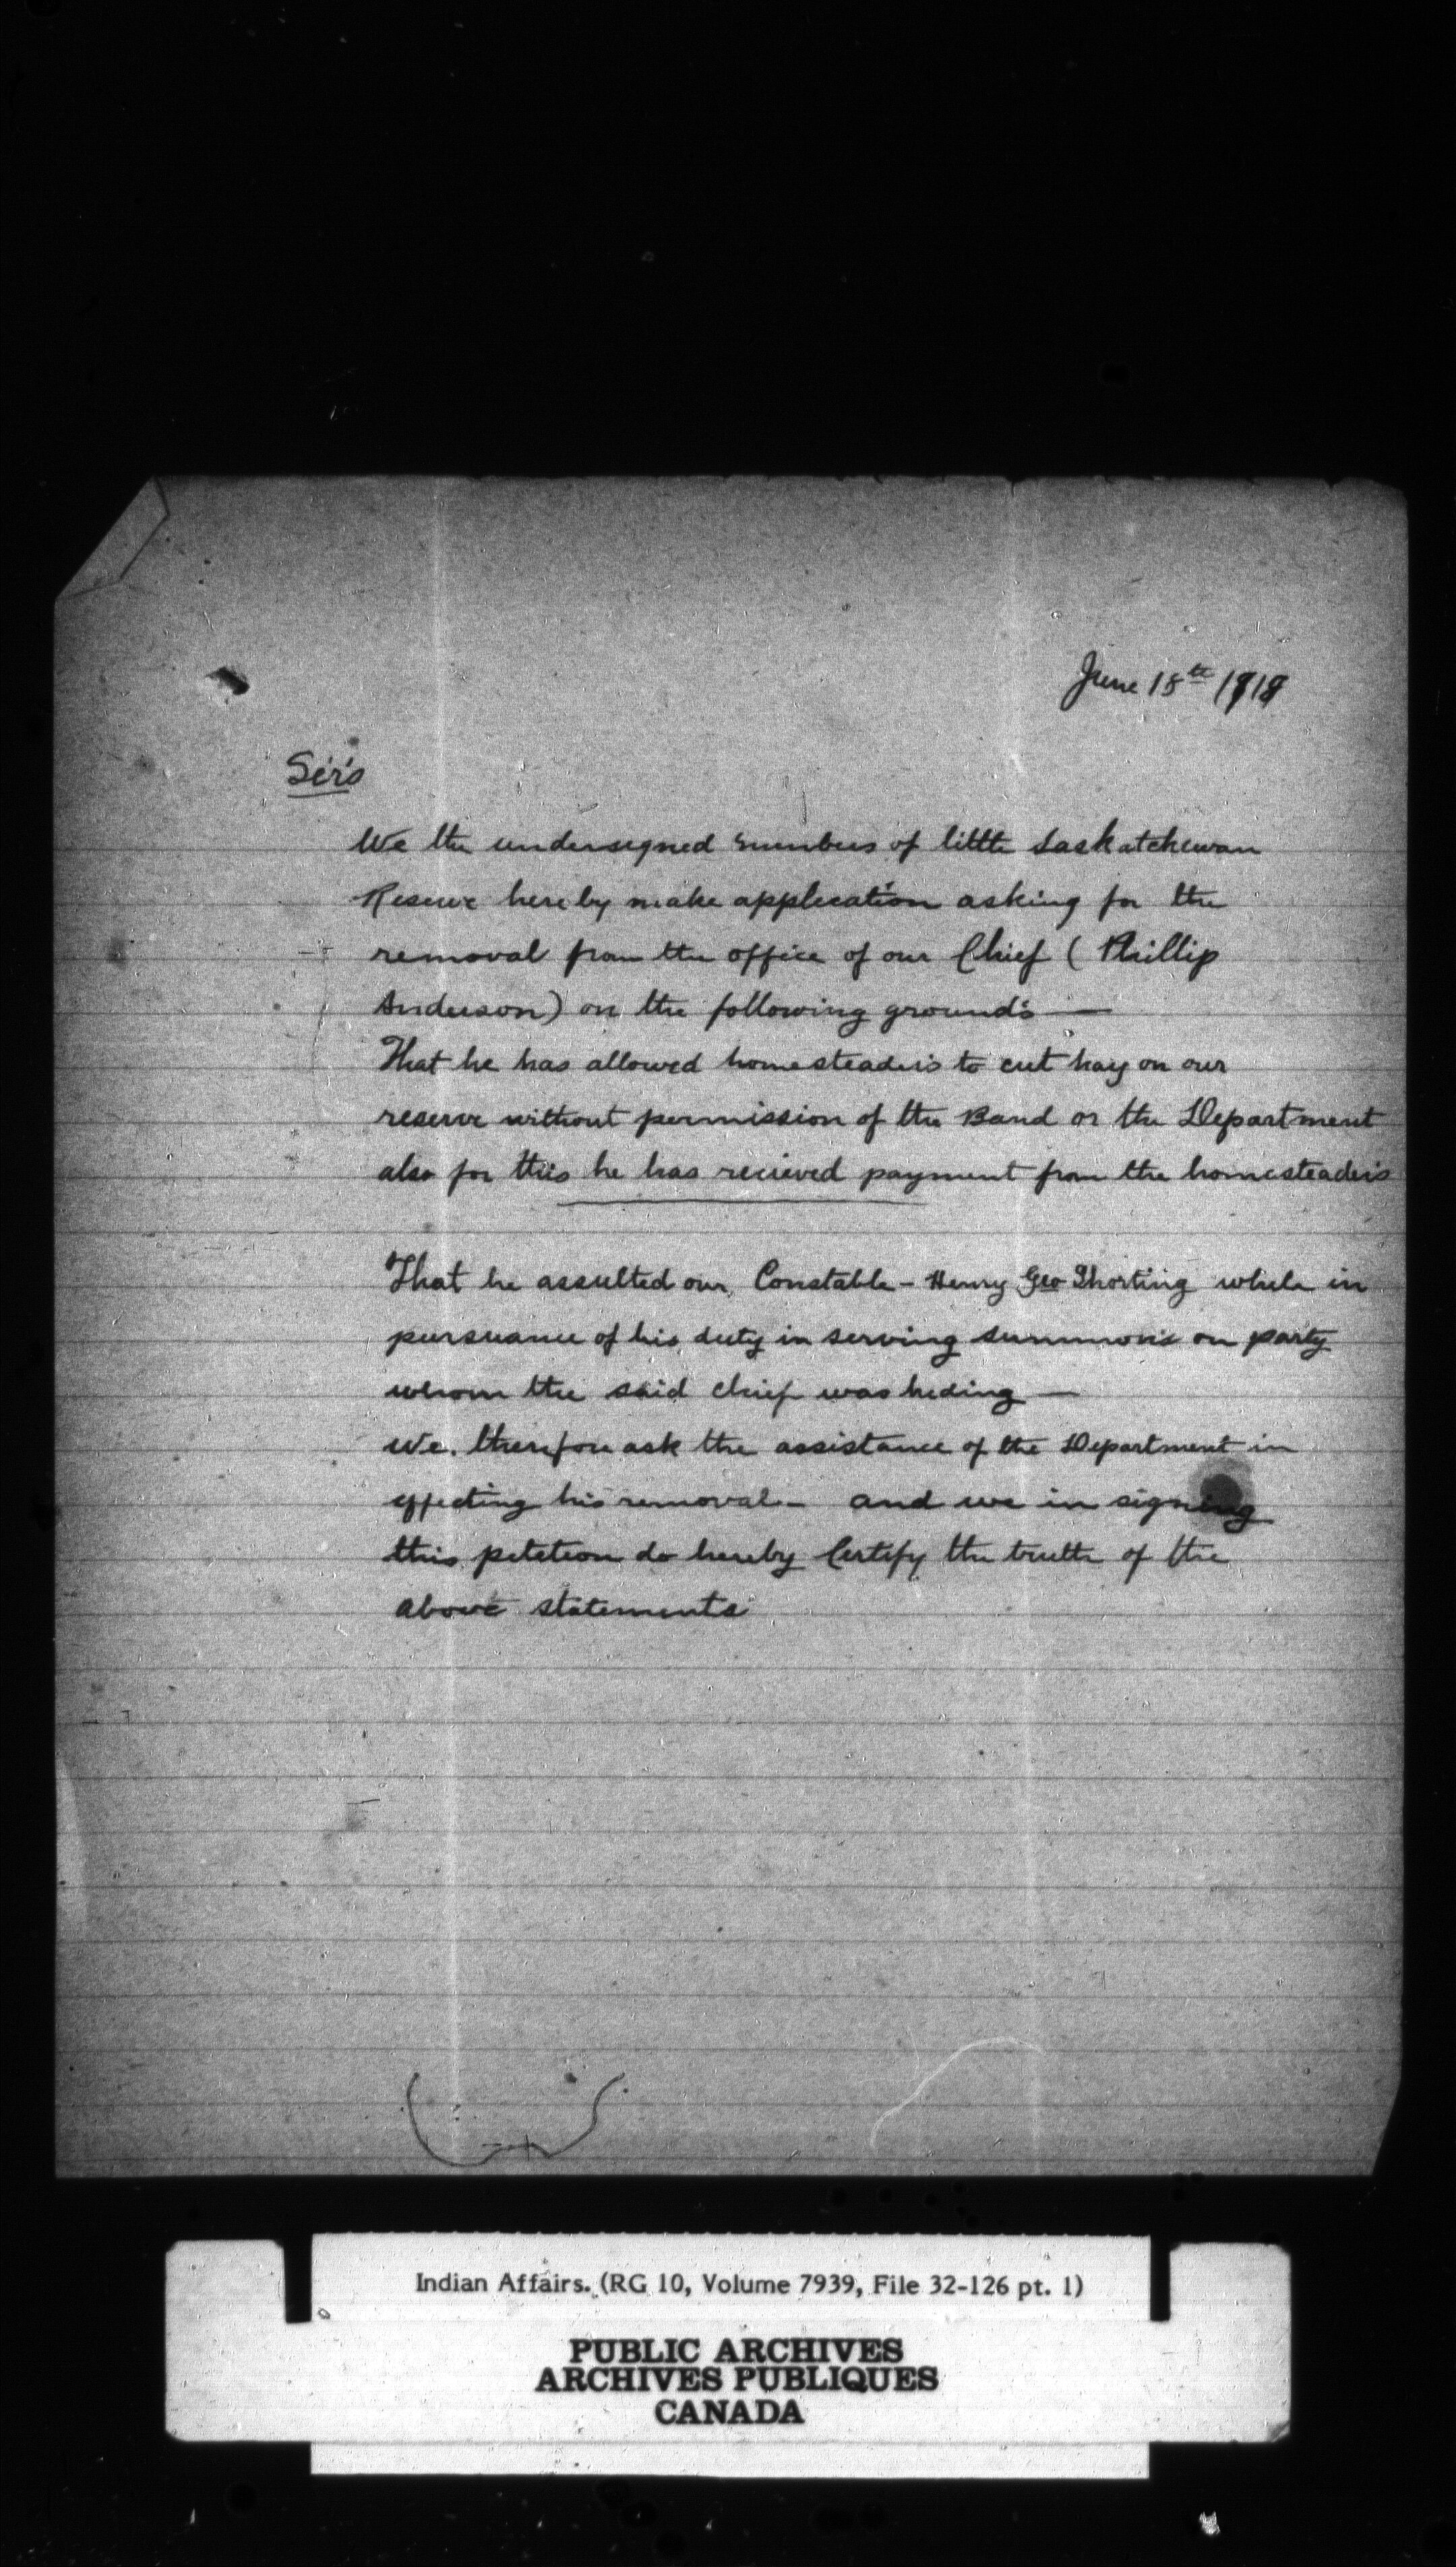 June 18th 1918
Sir's
We the undersigned members of little Saskatchewan
Reserve hereby make application asking for the
removal from the office of our Chief ( Phillip
Anderson) on the following ground's —
That he has allowed homesteader's to cut hay on our
reserve without permission of the Band or the Department
also for this he has recieved payment from the homesteader's
That he assulted our Constable - Henry Geo Shorting while in
pursuance of his duty in serving summon's on party
whom the said chief was hiding —
We. therefore ask the assistance of the Department in
effecting his removal - and we in signing
this petetion do hereby Certify the truth of the
above statements
Indian Affairs. (RG 10, Volume 7939, File 32-126 pt. 1)
PUBLIC ARCHIVES
ARCHIVES PUBLIQUES
CANADA